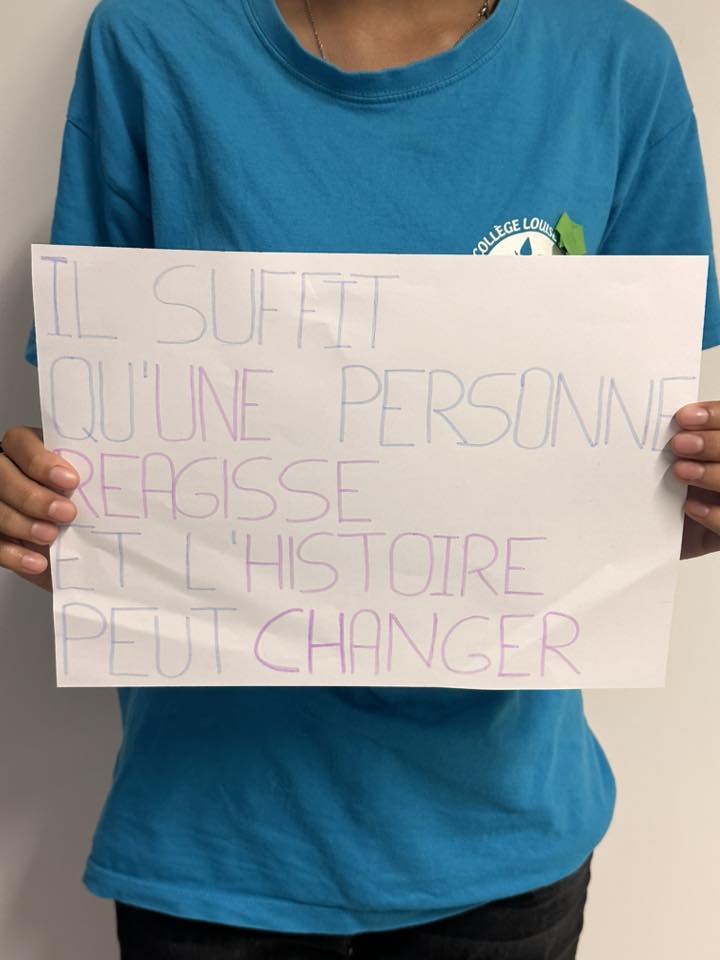 COLLÈGE LOUISE
IL SUFFIT
QU'UNE PERSONNE
REAGISSE
ET L'HISTOIRE
PEUT CHANGER